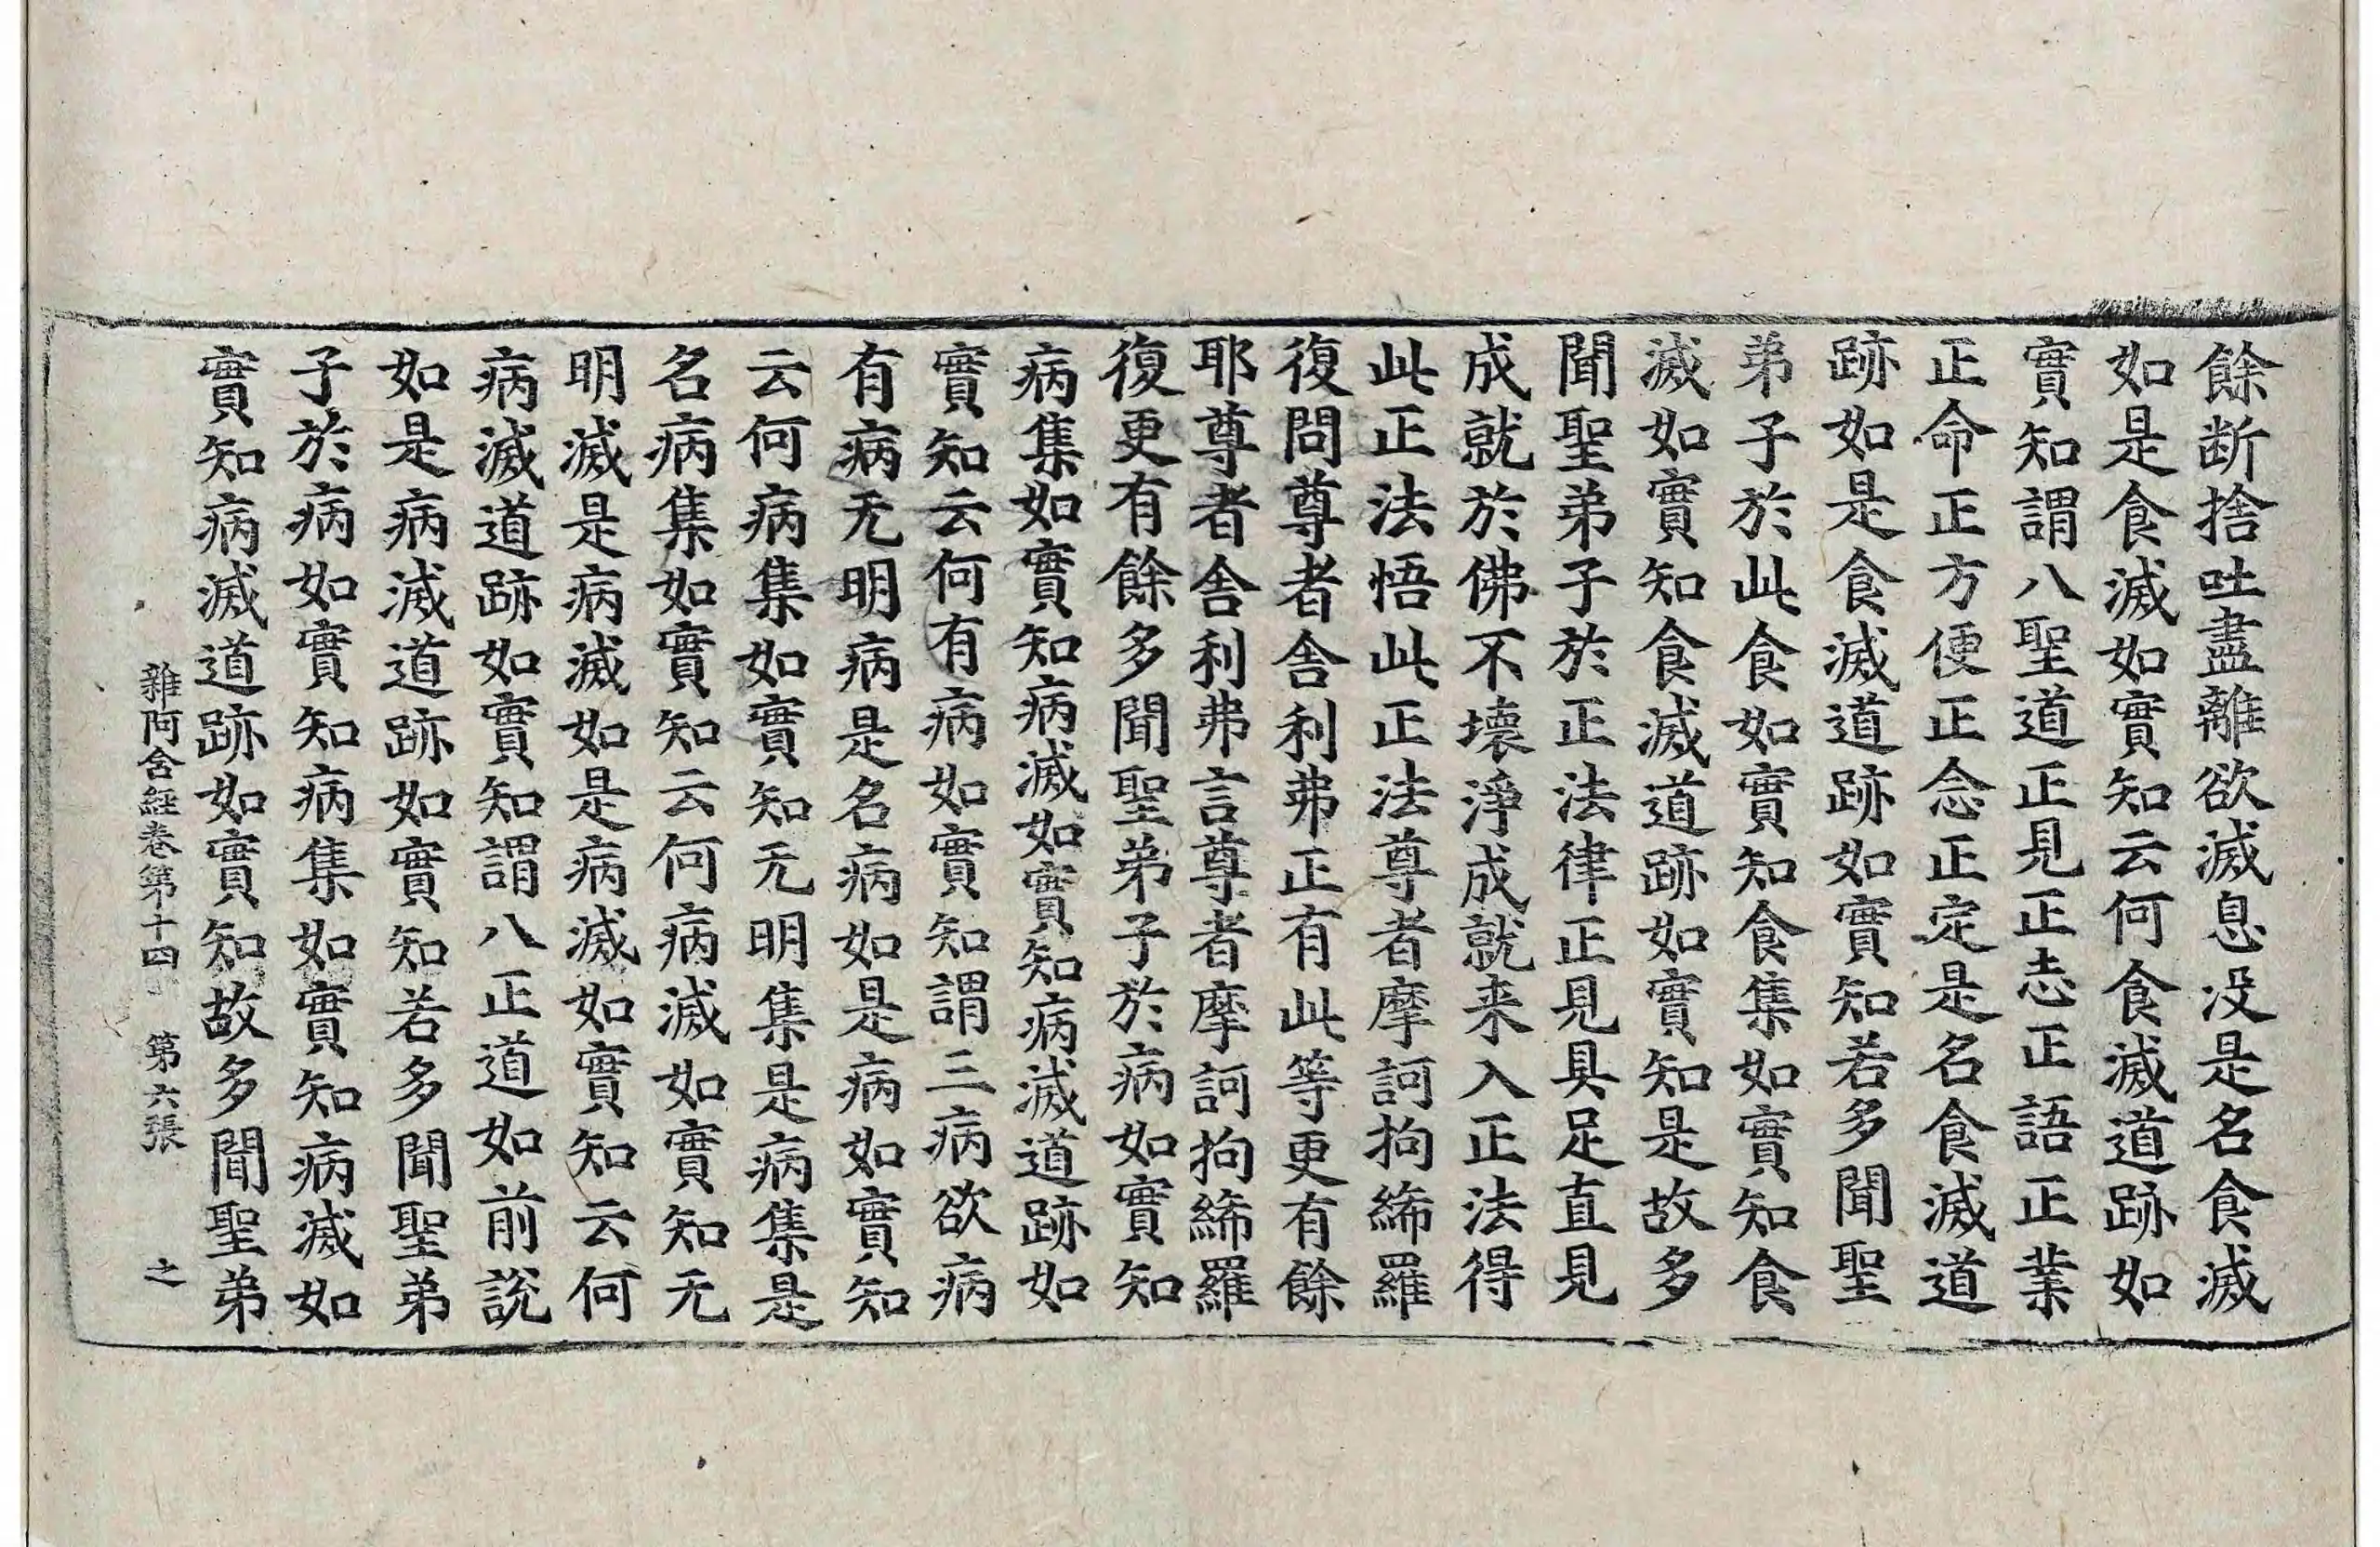 餘断捨吐盡離欲滅息没是名食滅
如是食滅如實知云何食滅道跡如
實知謂八聖道正見正志正語正業
正命正方便正念正定是名食滅道
跡如是食滅道跡如實知若多聞聖
弟子於此食如實知食集如實知食
滅如實知食滅道跡如實知是故多
聞聖弟子於正法律正見具足直見
成就於佛不壞淨成就来入正法得
此正法悟此正法尊者摩訶拘絺羅
復問尊者舍利弗正有此等更有餘
耶尊者舍利弗言尊者摩訶拘絺羅
復更有餘多聞聖弟子於病如實知
病集如實知病滅如實知病滅道跡如
實知云何有病如實知謂三病欲病
有病无明病是名病如是病如實知
云何病集如實知无明集是病集是
名病集如實知云何病滅如實知无
明滅是病滅如是病滅如實知云何
病滅道跡如實知謂八正道如前說
如是病滅道跡如實知若多聞聖弟
子於病如實知病集如實知病滅如
實知病滅道跡如實知故多聞聖弟
雜阿含經卷第十四 第六張 之